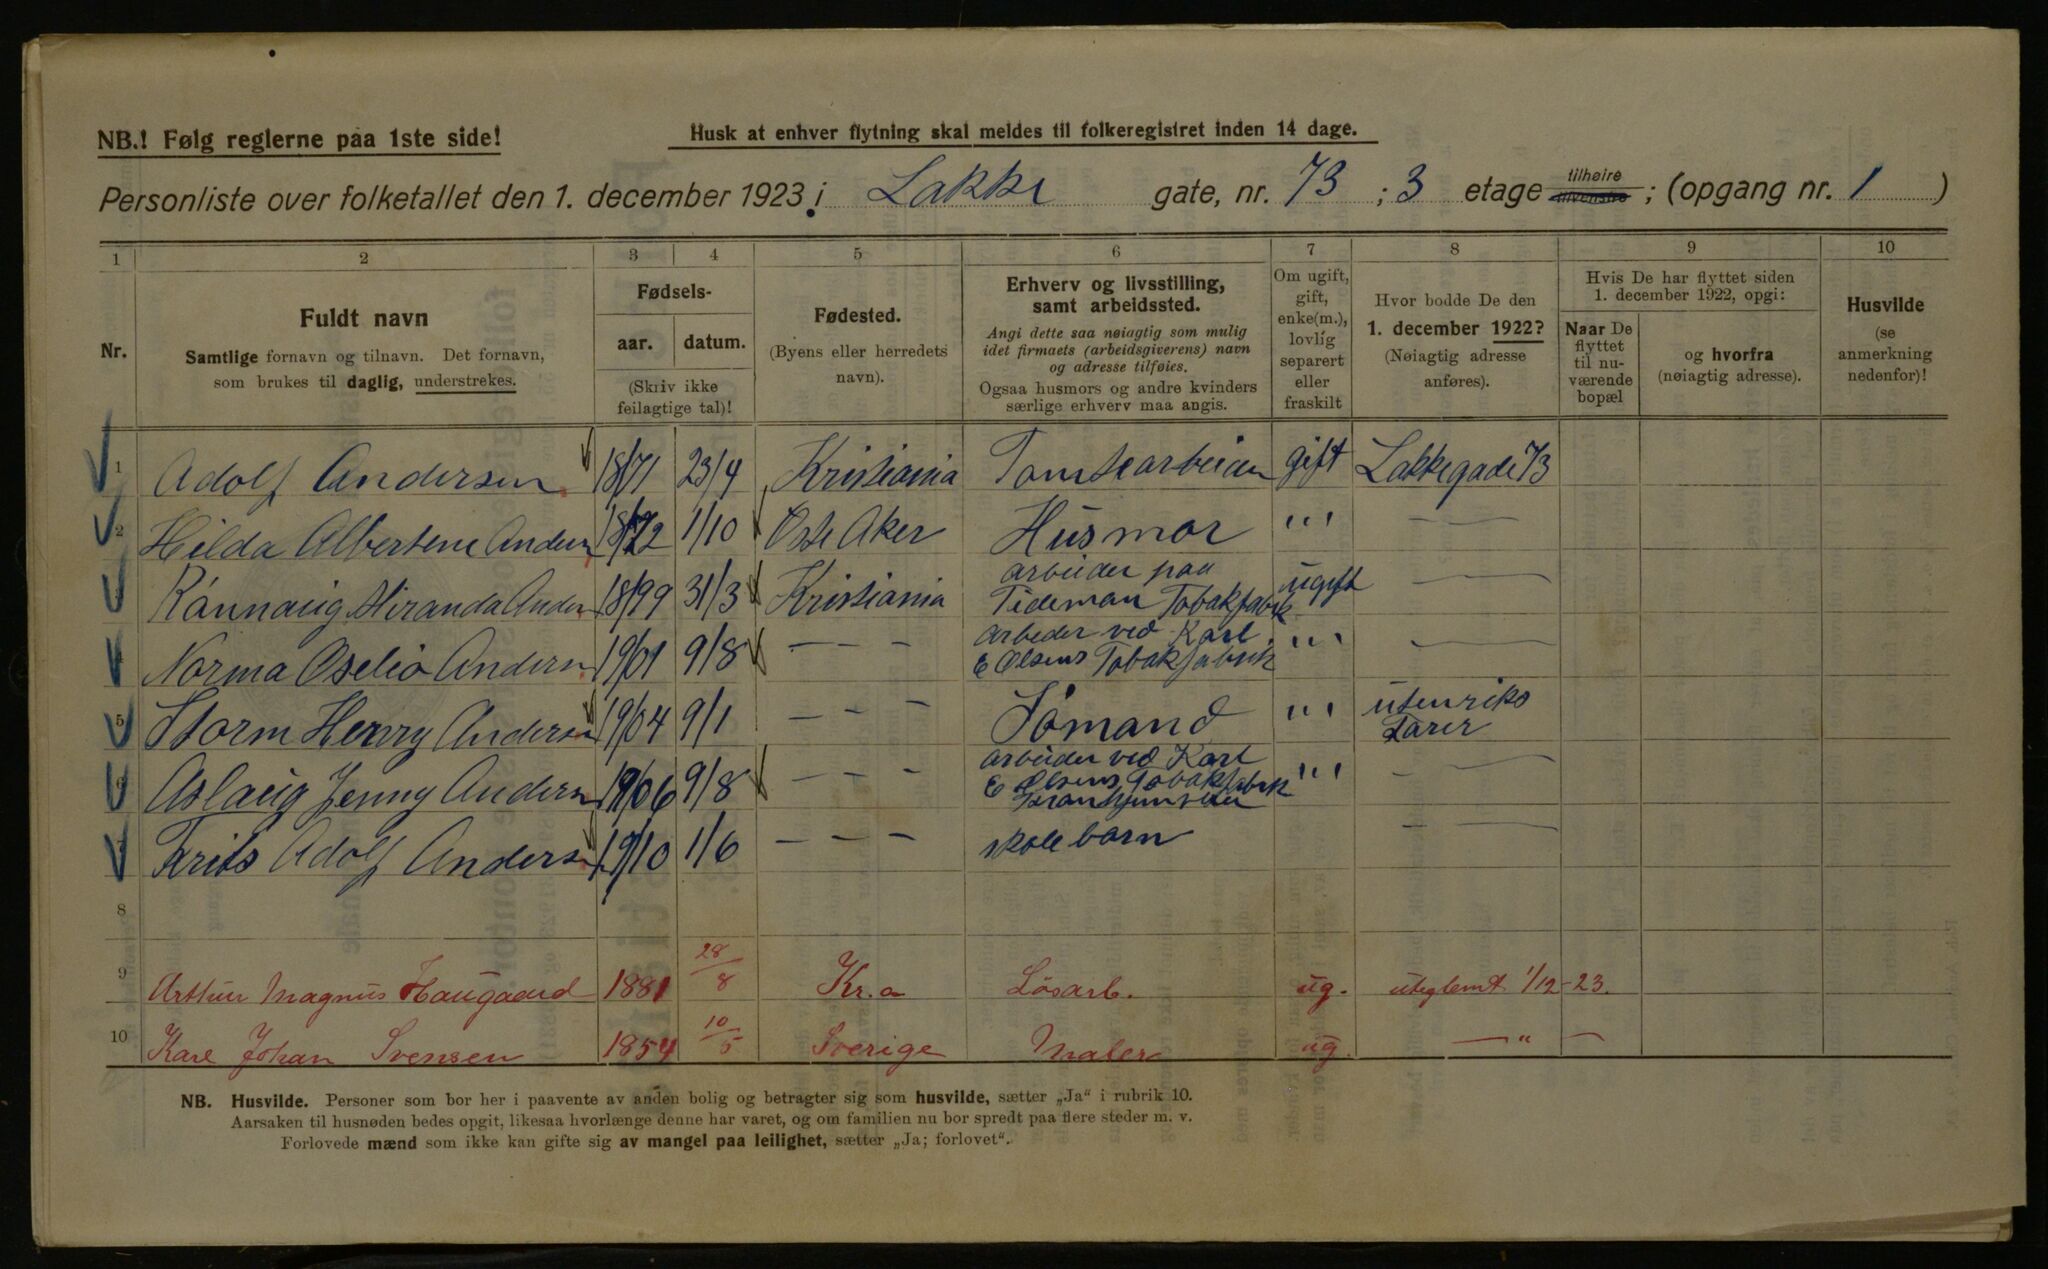 NB.! Følg reglerne paa 1ste side!
Husk at enhver flytning skal meldes til folkeregistret inden 14 dage.
Personliste over folketallet den 1. december 1923 i Lakke gate, nr. 73 ; 3 etage tilhøire tilvenstre ; (opgang nr. 1 )
1 2 3 4 5 6 7 8 9 10
Nr.
Fuldt navn
Samtlige fornavn og tilnavn. Det fornavn,
som brukes til daglig, understrekes.
Fødsels-
aar. datum.
(Skriv ikke
feilagtige tal)!
Fødested.
(Byens eller herredets
navn).
Erhverv og livsstilling,
samt arbeidssted.
Angi dette saa nøiagtig som mulig
idet firmaets (arbeidsgiverens) navn
og adresse tilføies.
Ogsaa husmors og andre kvinders
særlige erhverv maa angis.
Om ugift,
gift,
enke(m.),
lovlig
separert
eller
fraskilt
Hvor bodde De den
1. december 1922?
(Nøiagtig adresse
anføres).
Hvis De har flyttet siden
1. december 1922, opgi:
Naar De
flyttet
til nu-
værende
bopæl
og hvorfra
(nøiagtig adresse).
Husvilde
(se
anmerkning
nedenfor)!
1 Adolf Andersen 18/71 23/4 Kristiania Tomtearbeider gift Lakkegade 73
2 Hilda Albertene Andersn 18/72 1/10 Østr Aker Husmor "" —
Rannaug Miranda Andern 18/99 31/3 Kristiania arbeider paa
Tideman Tobakfabrik ugift —
4 Norma Oselio Andersn 19/01 9/8 — — — arbeder ved Karl
E Olsens Tobakfabrik "" —
5 Storm Henry Andersn 19/04 9/1 — — — Sömand "" utenriks
Farer
Aslaug Jenny Andersn 19/06 9/8 — — — arbeider ved Karl
E Olsens Tobakfabrik "" —
Frits Adolf Andersn 19/10 1/6 — — — skolebarn — —
8
9 Arthur Magnus Haugaard 1881 28/8 Kr.a Løsarb. ug. uteglemt 1/12-23.
10 Karl Johan Svensen 1854 10/5 Sverige Maler ug. — " —
NB. Husvilde. Personer som bor her i paavente av anden bolig og betragter sig som husvilde, sætter „Ja" i rubrik 10.
Aarsaken til husnøden bedes opgit, likesaa hvorlænge denne har varet, og om familien nu bor spredt paa flere steder m. v.
Forlovede mænd som ikke kan gifte sig av mangel paa leilighet, sætter „Ja; forlovet".